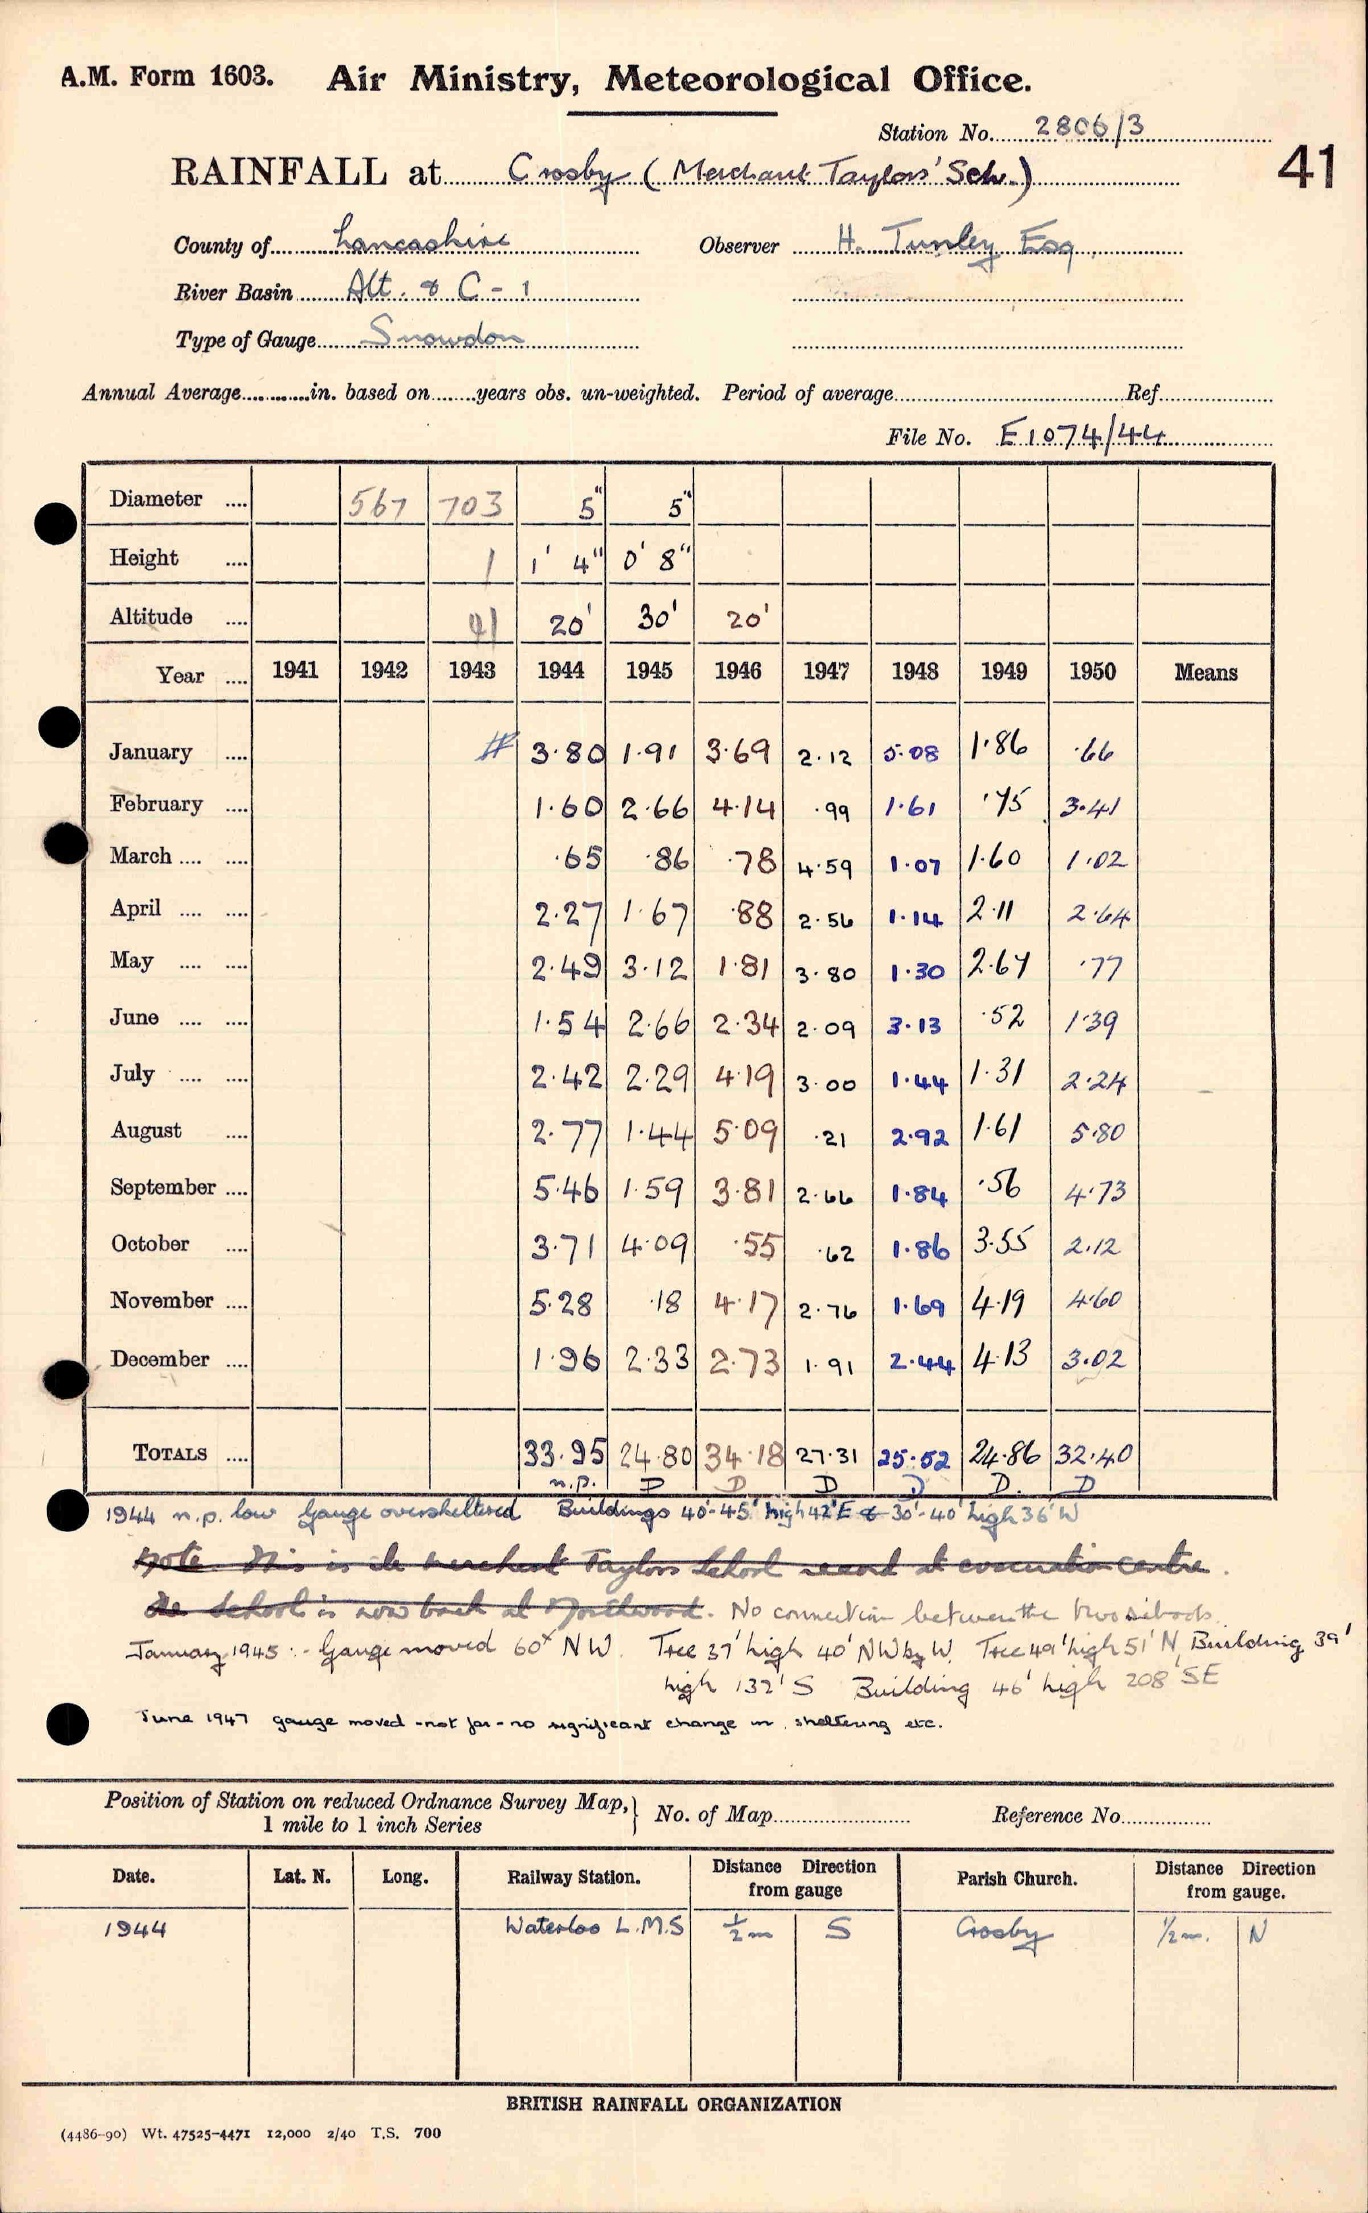 A.M. Form 1603. Air Ministry, Meteorological Office.
Station No. 2806/3
41
RAINFALL at Crosby (Merchant Taylors' Sch.)
County of Lancashire Observer H. Tunley Esq.
River Basin Alt. & C - 1
Type of Gauge Snowdon
Annual Average in. based on years obs. un-weighted. Period of average Ref
File No. E1074/44
Diameter .... 567 703 5" 5"
Height .... 1 1' 4" 0' 8"
Altitude .... 41 20' 30' 20'
Year .... 1941 1942 1943 1944 1945 1946 1947 1948 1949 1950 Means
January .... # 3.80 1.91 3.69 2.12 5.08 1.86 .66
February .... 1.60 2.66 4.14 .99 1.61 .75 3.41
March .... .... .65 .86 .78 4.59 1.07 1.60 1.02
April .... .... 2.27 1.67 .88 2.56 1.14 2.11 2.64
May .... .... 2.49 3.12 1.81 3.80 1.30 2.67 .77
June .... .... 1.54 2.66 2.34 2.09 3.13 .52 1.39
July .... .... 2.42 2.29 4.19 3.00 1.44 1.31 2.24
August .... 2.77 1.44 5.09 .21 2.92 1.61 5.80
September .... 5.46 1.59 3.81 2.66 1.84 .56 4.73
October .... 3.71 4.09 .55 .62 1.86 3.55 2.12
November .... 5.28 .18 4.17 2.76 1.69 4.19 4.60
December .... 1.96 2.33 2.73 1.91 2.44 4.13 3.02
TOTALS .... 33.95 24.80 34.18 27.31 25.52 24.86 32.40
n.p. D D D D D. D
1944 n.p. low Gauge oversheltered Buildings 40'-45' high 42'E & 30'-40' high 36'W
Note. This is the Merchant Taylors School record at evacuation centre.
The School is now back at Northwood. No connection between the two schools.
January 1945 :- Gauge moved 60x NW. Tree 37' high 40' NW by W. Tree 49' high 51' N, Building 39'
high 132' S Building 46' high 208' SE
June 1947 gauge moved - not far - no significant change in sheltering etc.
Position of Station on reduced Ordnance Survey Map, } No. of Map Reference No.
1 mile to 1 inch Series
Date. Lat. N. Long. Railway Station. Distance Direction from gauge Parish Church. Distance Direction from gauge.
1944 Waterloo L.M.S ½m S Crosby ½m. N
BRITISH RAINFALL ORGANIZATION
(4486-90) Wt. 47525-4471 12,000 2/40 T.S. 700